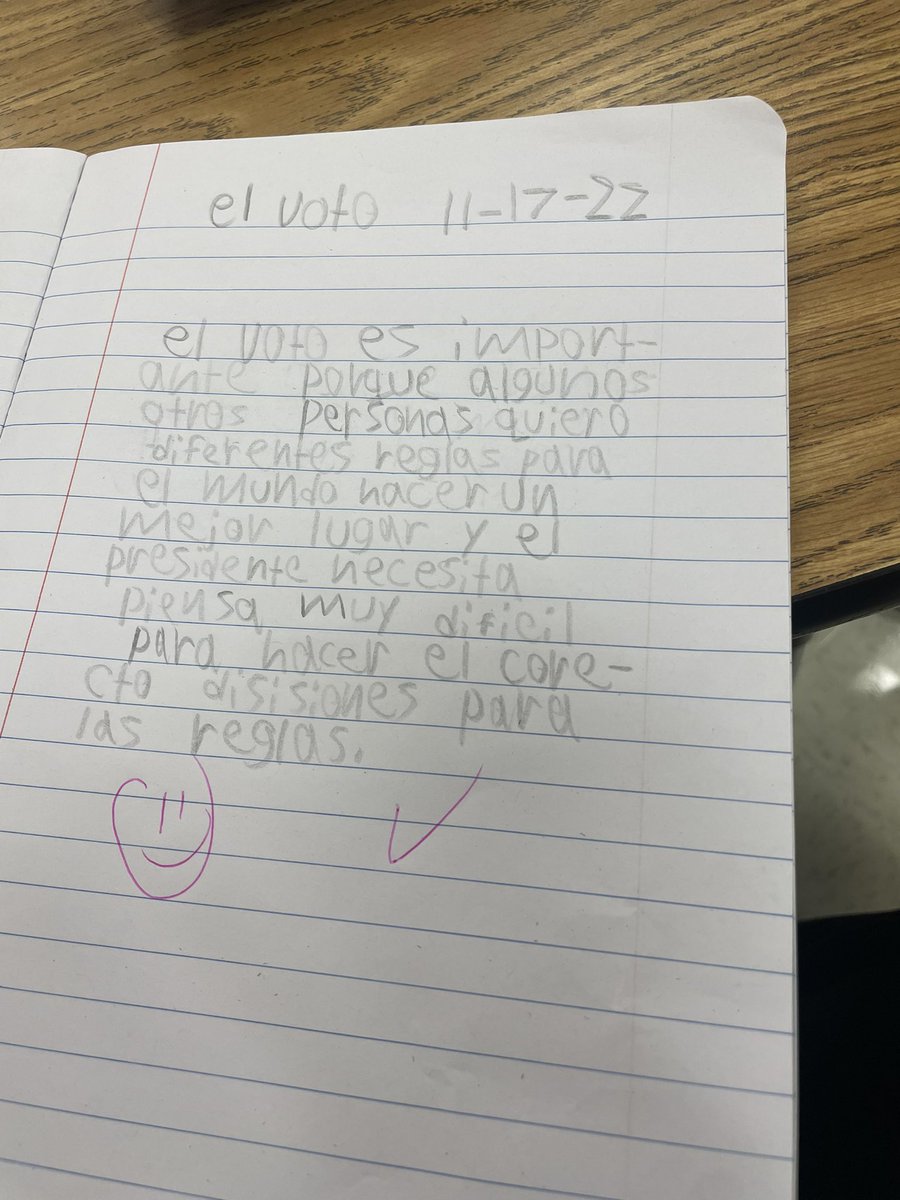 el voto 11-17-22
el voto es import-
ante porque algunos
otros personas quiero
diferentes reglas para
el mundo hacer un
mejor lugar y el
presidente necesita
piensa muy dificil
para hacer el core-
cto disisiones para
las reglas.